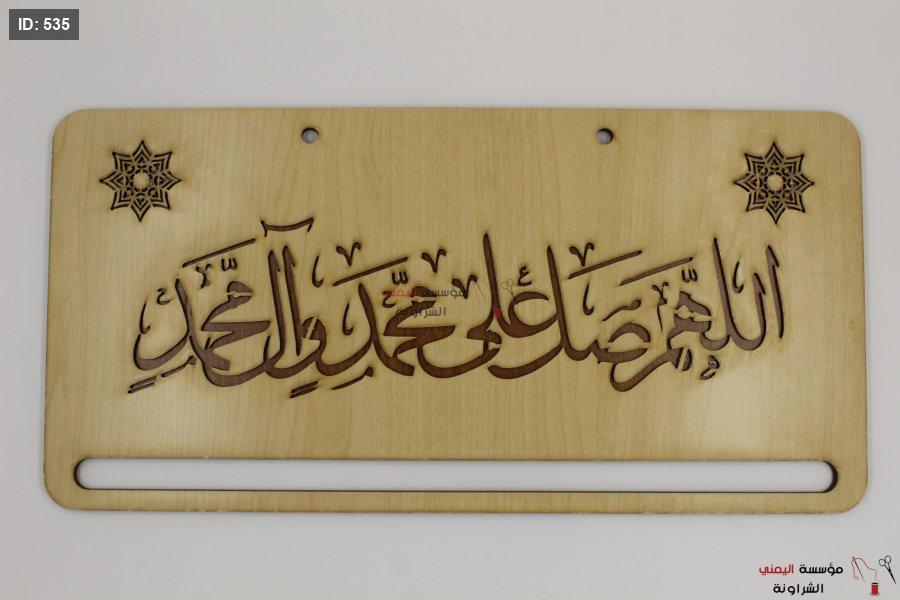 ID: 535
اللهم صل على محمد وآل محمد
مؤسسة اليمني
الشراونة
مؤسسة اليمني
الشراونة